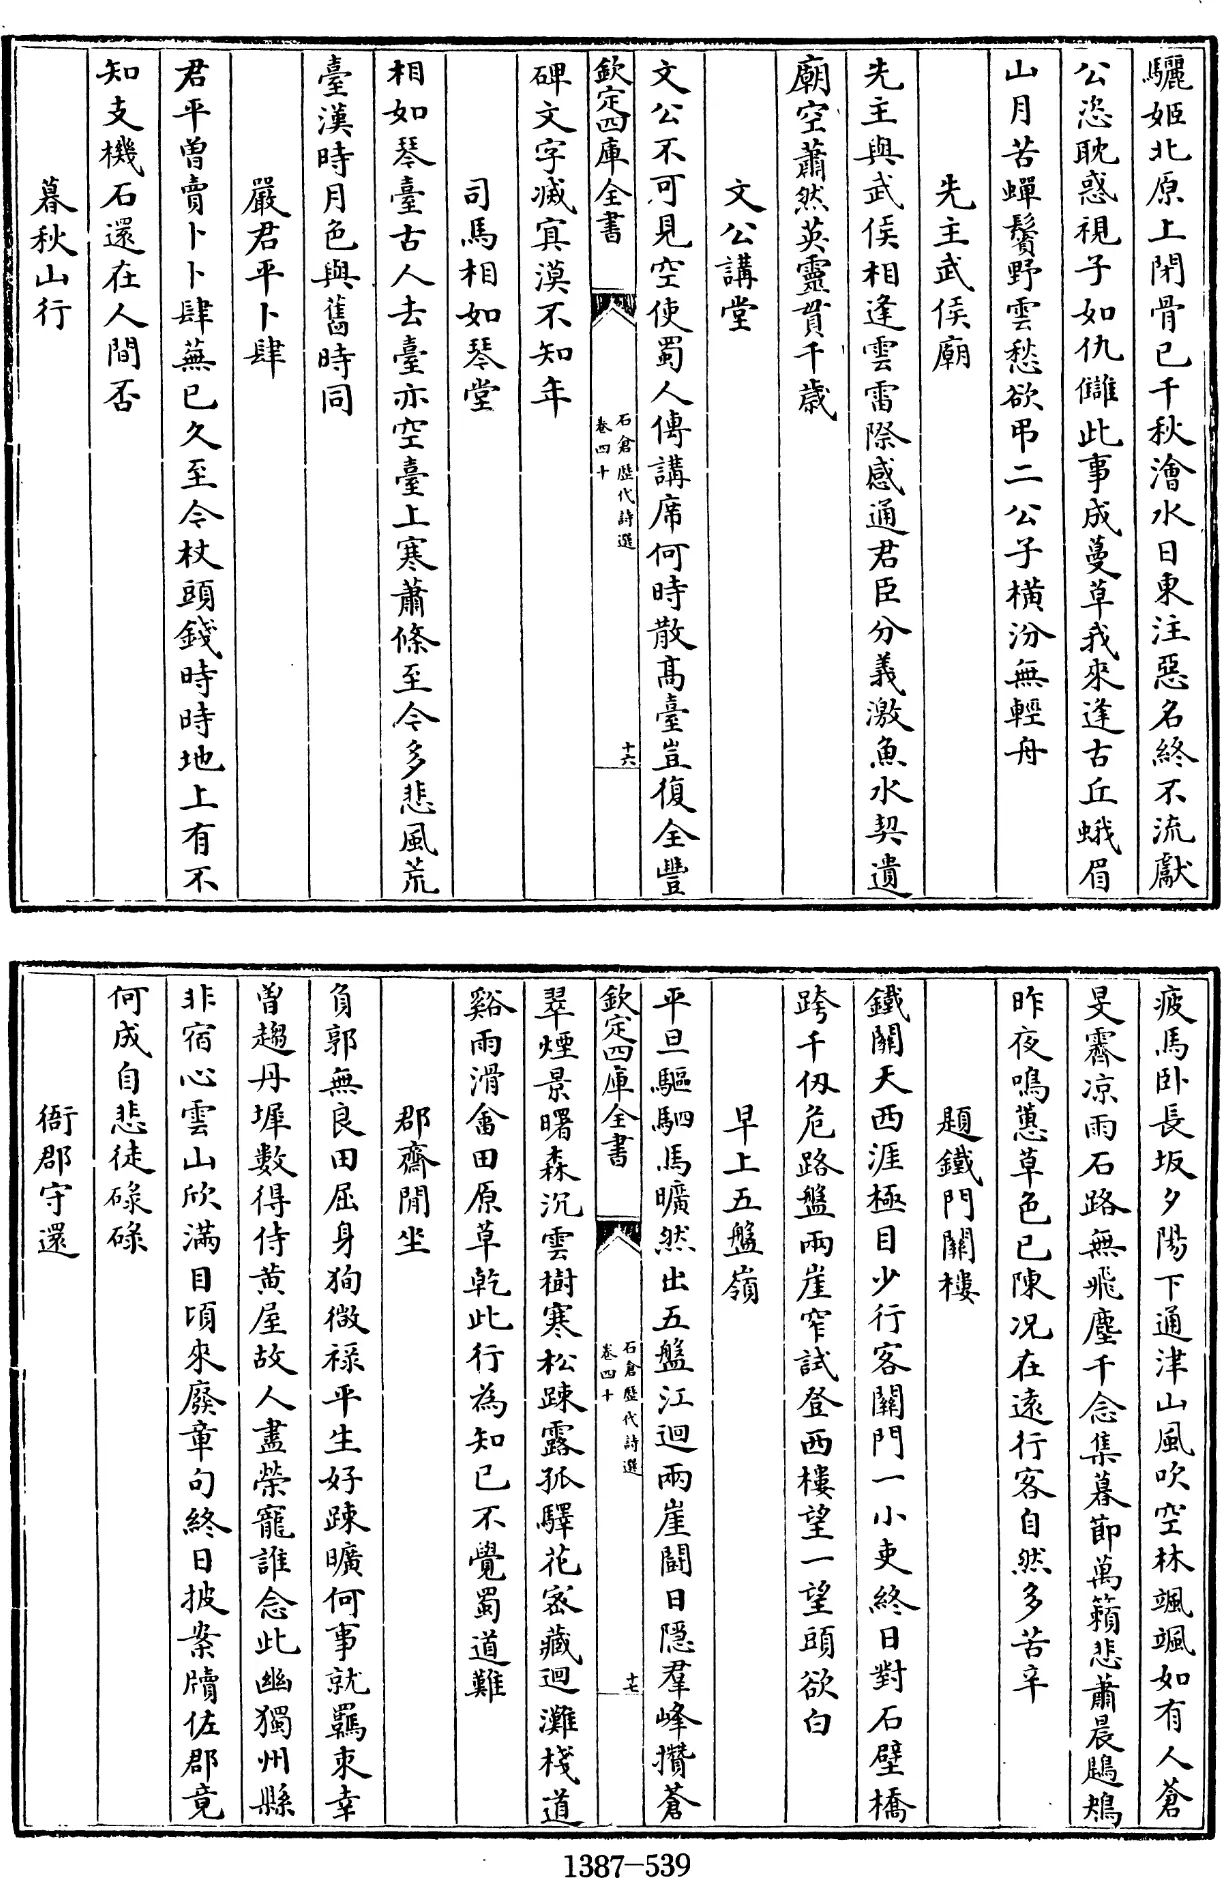 驪姬北原上閉骨已千秋澮水日東注惡名終不流獻
公恣耽惑視子如仇讎此事成蔓草我來逢古丘蛾眉
山月苦蟬鬢野雲愁欲弔二公子橫汾無輕舟
先主武侯廟
先主與武侯相逢雲雷際感通君臣分義激魚水契遺
廟空蕭然英靈貫千歳
文公講堂
文公不可見空使蜀人傳講席何時散髙臺豈復全豐
欽定四庫全書
石倉歷代詩選
卷四十
十六
碑文字滅㝠漠不知年
司馬相如琴堂
相如琴臺古人去臺亦空臺上寒蕭條至今多悲風荒
臺漢時月色與舊時同
嚴君平卜肆
君平曽賣卜卜肆蕪已久至今杖頭錢時時地上有不
知支機石還在人間否
暮秋山行
疲馬卧長坂夕陽下通津山風吹空林颯颯如有人蒼
旻霽凉雨石路無飛塵千念集暮節萬籟悲蕭晨鶗鴂
昨夜鳴蕙草色已陳况在逺行客自然多苦辛
題鐵門關樓
鐵關天西涯極目少行客關門一小吏終日對石壁橋
跨千仭危路盤兩崖窄試登西樓望一望頭欲白
早上五盤嶺
平旦驅駟馬曠然出五盤江迴兩崖鬬日隱羣峰攢蒼
欽定四庫全書
石倉歷代詩選
卷四十
十七
翠煙景曙森沉雲樹寒松踈露孤驛花宻藏迴灘棧道
谿雨滑畬田原草乾此行為知已不覺蜀道難
郡齋閒坐
負郭無良田屈身狥微禄平生好踈曠何事就羈束幸
曽趨丹墀數得侍黄屋故人盡榮寵誰念此幽獨州縣
非宿心雲山欣滿目頃來廢章句終日披案牘佐郡竟
何成自悲徒碌碌
衙郡守還
1387—539